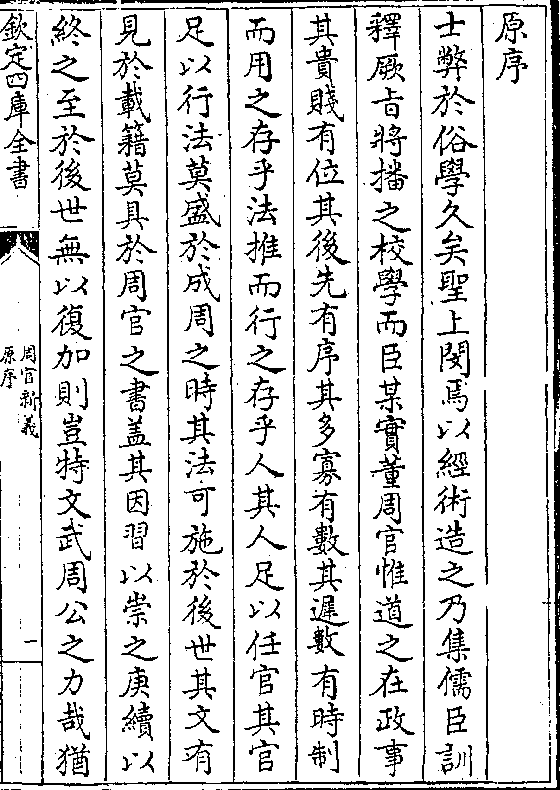 原序
士弊於俗學久矣聖上閔焉以經術造之乃集儒臣訓
釋厥旨將播之校學而臣某實董周官惟道之在政事
其貴賤有位其後先有序其多寡有數其遲數有時制
而用之存乎法推而行之存乎人其人足以任官其官
足以行法莫盛於成周之時其法可施於後世其文有
見於載籍莫具於周官之書盖其因習以崇之庚續以
終之至於後世無以復加則豈特文武周公之力哉猶
欽定四庫全書
周官新義
原序
一